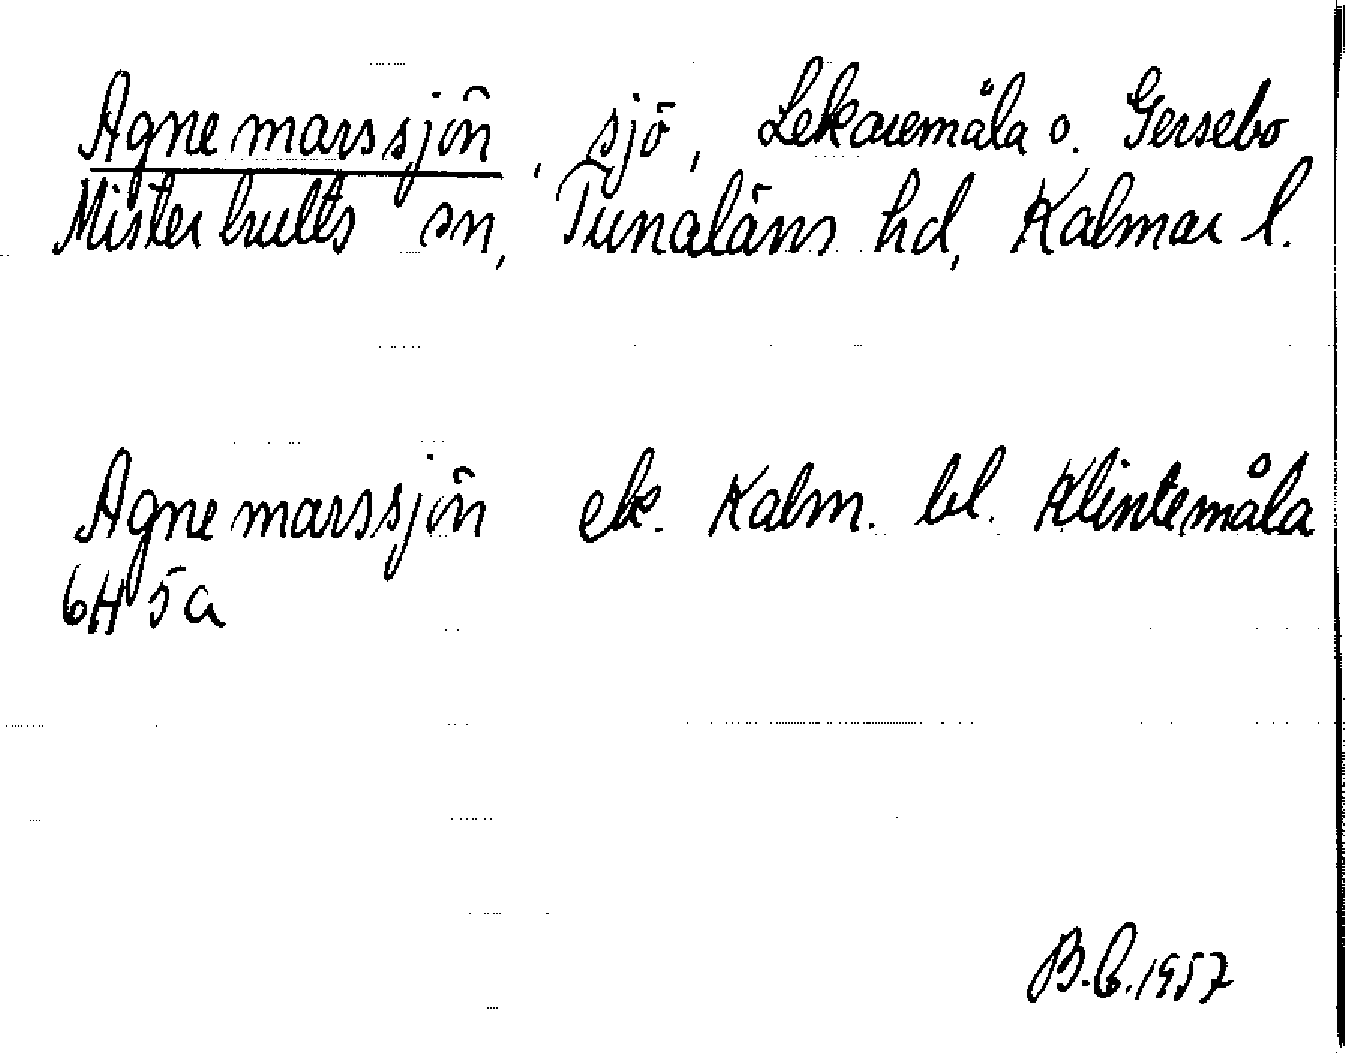 Agnemarssjön, sjö, Lekaremåla o. Gersebo
Misterhults sn, Tunaläns hd, Kalmar l.
Agnemarssjön ek. Kalm. bl. Klintemåla
6H 5a
B.C. 1957